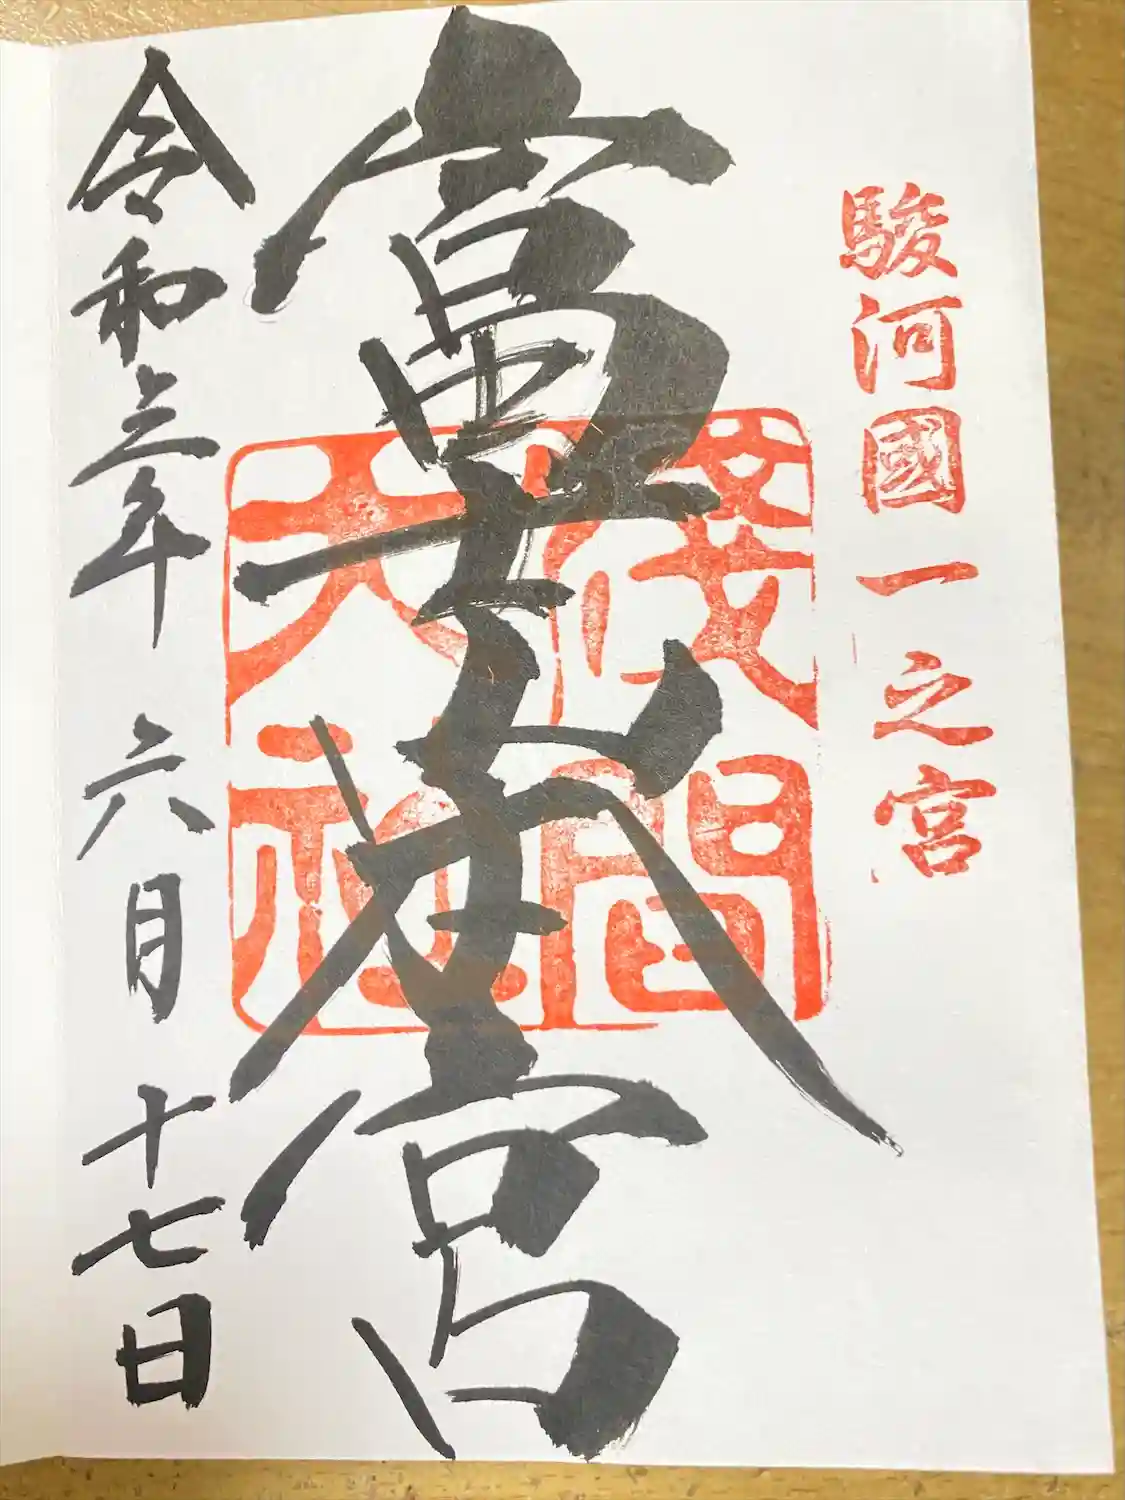 駿河國一之宮
富士山本宮
淺間
大社
令和三年 六月 十七日